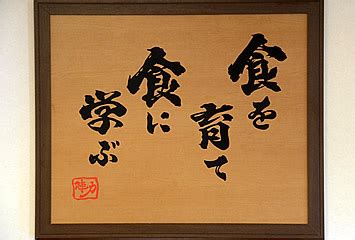 食を
育て
食に
学ぶ